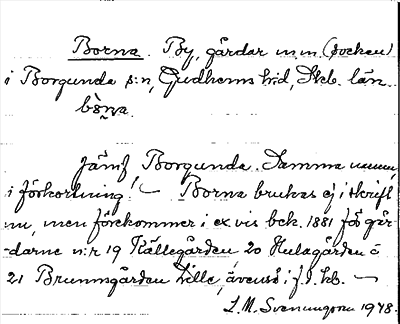 Borna. By, gårdar m.m. (socken)
i Borgunda s:n, Gudhems h:d, Skb. län.
Jämf Borgunda. Samma namn,
i förkortning! — Borna brukas ej i skrift
nu, men förekommer i ex vis bck. 1881 för går-
darne n:r 19 Källegården, 20 Hulagården o
21 Brunnsgården Lille, även så i f.d. kb. —
L.M. Svenungsson 1948.